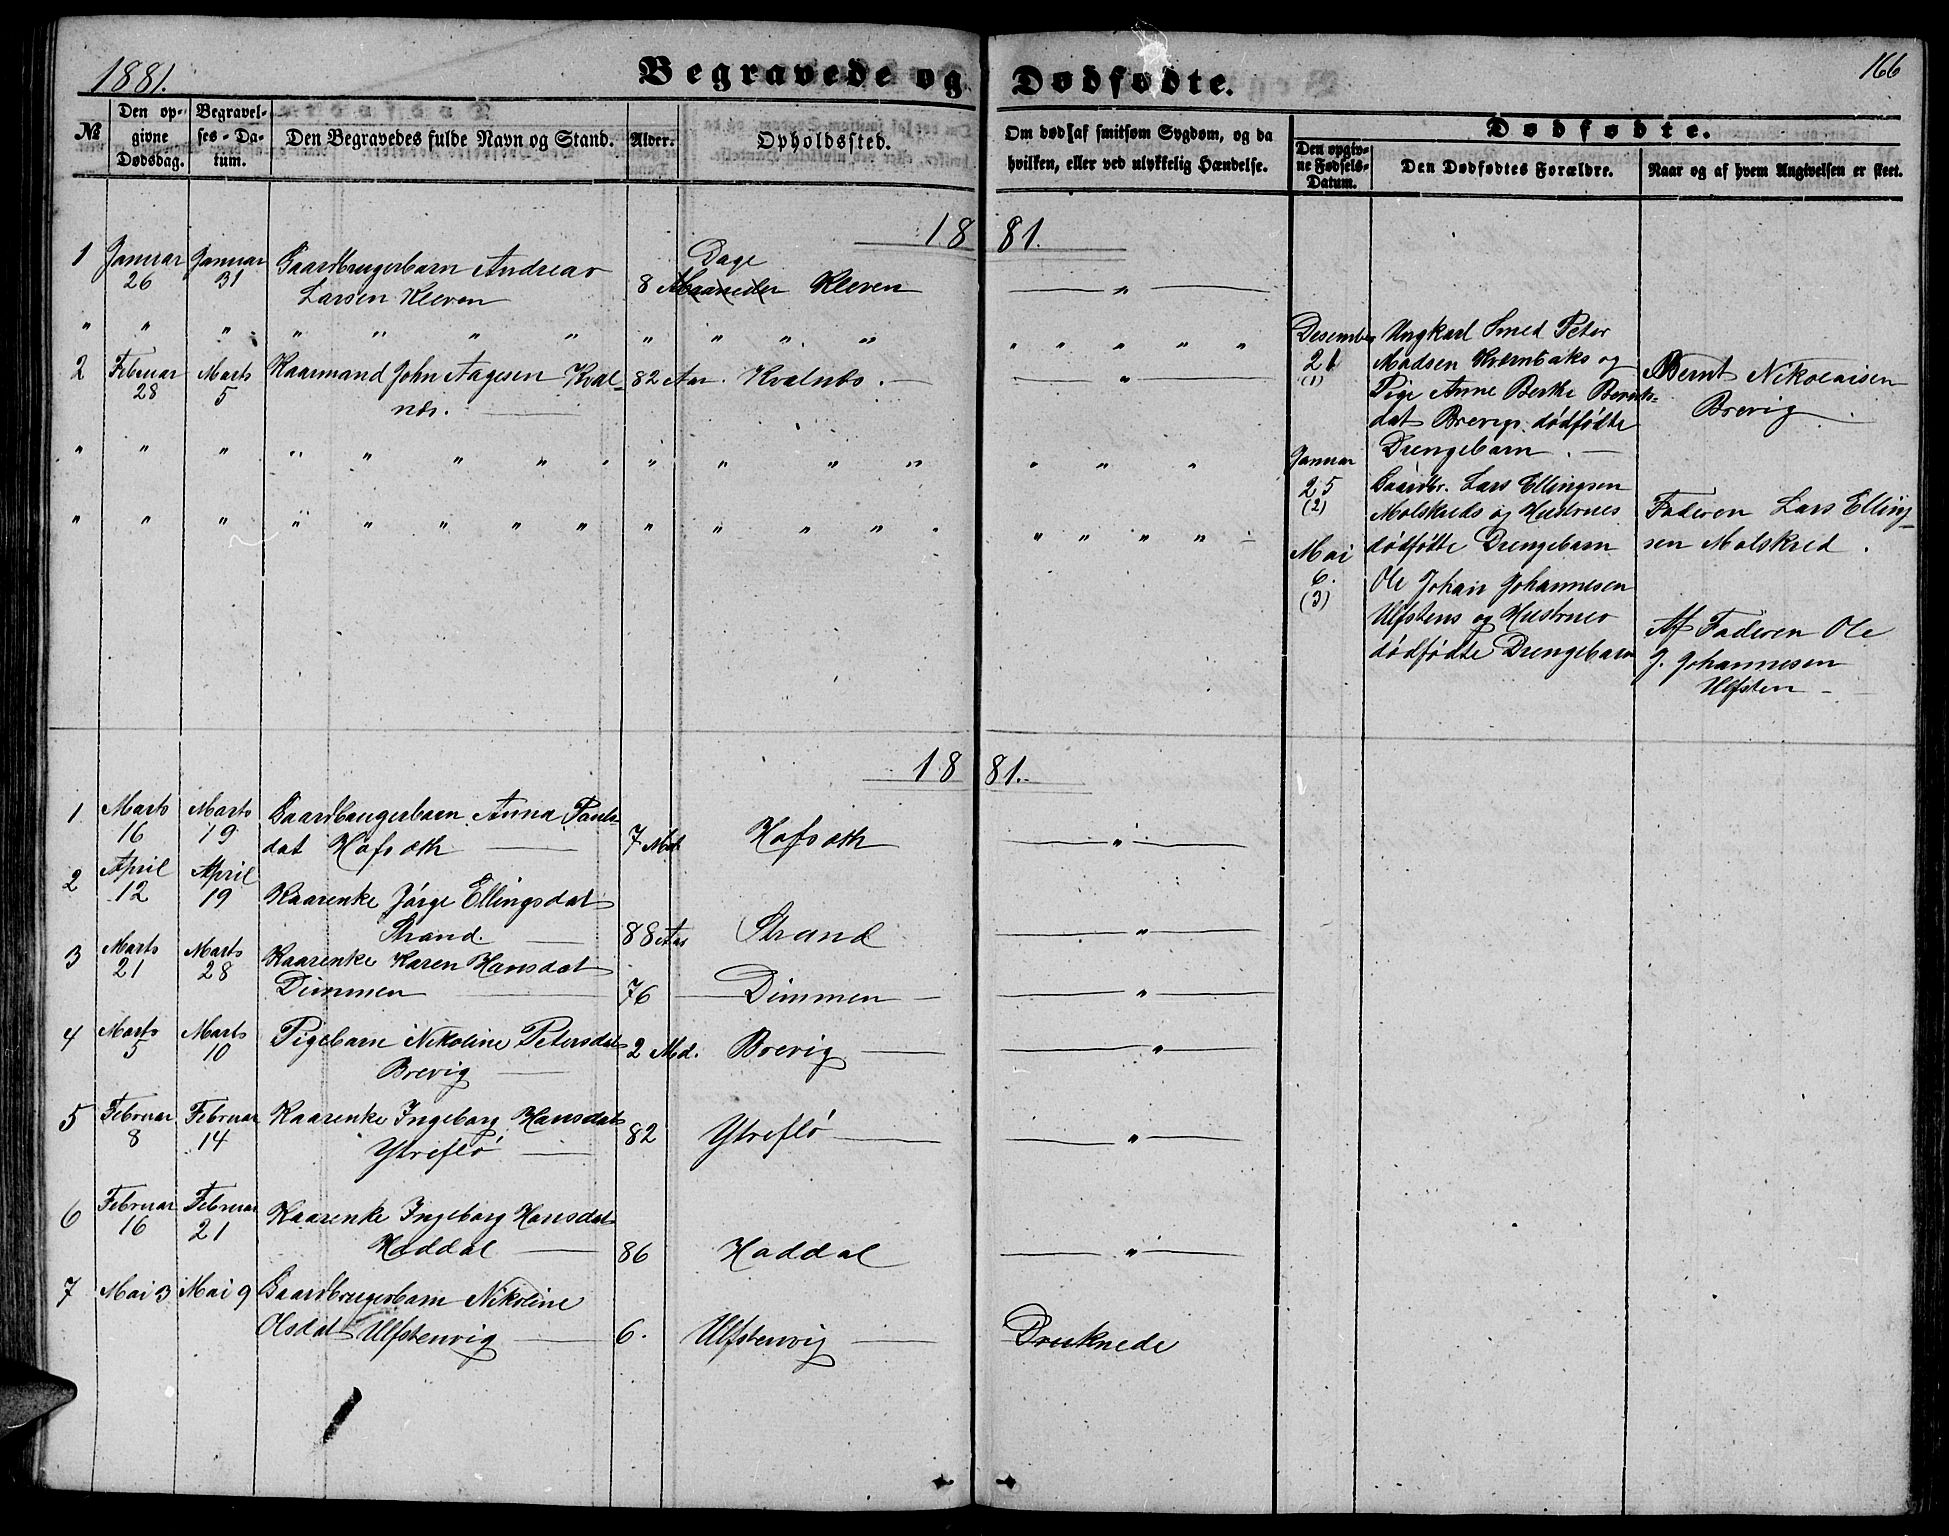 1881.
Begravede og Dødfødte.
166
№
Den op-
givne
Dødsdag.
Begravel-
ses-Da-
tum.
Den Begravedes fulde Navn og Stand.
Alder.
Opholdssted.
Om død af smitsom Sygdom, og da
hvilken, eller ved ulykkelig Hændelse.
Dødfødte.
Den opgiv-
ne Fødsels-
Datum.
Den Dødfødtes Forældre.
Naar og af hvem Angivelsen er skeet.
1881.
1 Januar 26 Januar 31 Gaardbrugerbarn Andreas
Larsen Kleven
8 Maaneder Dage Kleven — " —
" " " " " " " " " " " " " " " "
2 Februar 28 Marts 5 Kaarmand John Aagesen Kval-
næs. —
82 Aar. Kvalnæs. — — " —
" " " " " " " " " " " " " "
" " " " " " " " " " " " " " " "
Desember
21
(1)
Ungkarl Smed Peter
Madsen Kvernbaks og
Pige Anne Berthe Bernts-
dat Brevigs dødfødte
Drengebarn. —
Bernt Nikolaisen
Brevig
Januar
25
(2)
Gaardbr. Lars Ellingsen
Molskreds og Hustrues
dødfødte Drengebarn
Faderen Lars Elling-
sen Molskred.
Mai
6.
(3)
Ole Johan Johannesen
Ulfstens og Hustrues
dødfødte Drengebarn
Af Faderen Ole
J. Johannesen
Ulfsten —
1881.
1 Marts 16 Marts 19 Gaardbrugerbarn Anna Pauls-
dat Hofsæth — 7 Md Hofsæth — " —
2 April 12 April 19 Kaarenke Jørge Ellingsdat
Strand. — 88 Aar Strand — " —
3 Marts 21 Marts 28 Kaarenke Karen Hansdat
Dimmen — 76 — Dimmen — — " —
4 Marts 5 Marts 10 Pigebarn Nikoline Petersdat
Brevig — 2 Md. Brevig — — " —
5 Februar 8 Februar 14 Kaarenke Ingeborg Hansdat
Ytreflø — 82 Ytreflø — — " —
6 Februar 16 Februar 21 Kaarenke Ingeborg Hansdat
Haddal — 86 Haddal — " —
7 Mai 3 Mai 9 Gaardbrugerbarn Nikoline
Olsdat Ulfstenvig — 6. Ulfstenvig — Druknede